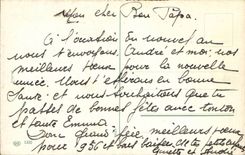 Mon cher Bon Papa
A l'occasion du nouvel an
nous t'envoyons, André et moi, nos
meilleurs vœux pour la nouvelle
année. Nous t'espérons en bonne
santé et nous souhaitons que tu
passes de bonnes fêtes avec tonton
et tante Emma
meilleurs vœux
pour 1950 et bons baisers de tes petits
et André